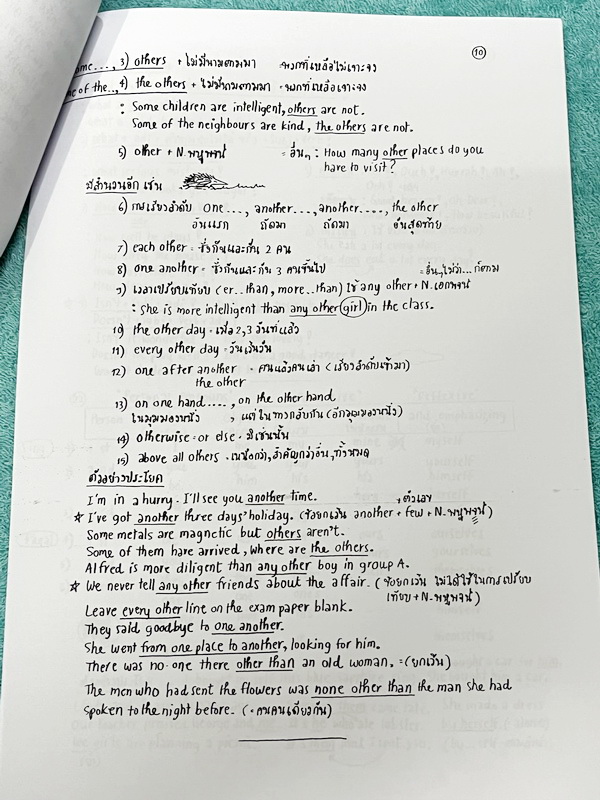 ⑩
ome..., 3) others + ไม่มีนามตามมา = พวกที่เหลือไม่เจาะจง
e of the.., 4) the others + ไม่มีนามตามมา = พวกที่เหลือเจาะจง
: Some children are intelligent, others are not.
Some of the neighbours are kind, the others are not.
5) other + N.พหูพจน์ = อื่นๆ : How many other places do you
have to visit?
มีสำนวนอีก เช่น
6) การเรียงลำดับ one..., another..., another...., the other
อันแรก ถัดมา ถัดมา อันสุดท้าย
7) each other = ซึ่งกันและกัน 2 คน
8) one another = ซึ่งกันและกัน 3 คนขึ้นไป = อื่นๆ ไม่ว่า...ก็ตาม
9) เวลาเปรียบเทียบ (er..than, more..than) ใช้ any other + N.เอกพจน์
: She is more intelligent than any other girl in the class.
10) the other day = เมื่อ 2,3 วันที่แล้ว
11) every other day = วันเว้นวัน
12) one after another = คนแล้วคนเล่า (เรียงลำดับเข้ามา)
the other
13) on one hand...., on the other hand
ในมุมมองหนึ่ง , แต่ในทางกลับกัน (อีกมุมมองหนึ่ง)
14) otherwise = or else = มิเช่นนั้น
15) above all others = เหนือกว่า, สำคัญกว่าอื่นๆทั้งหมด
ตัวอย่างประโยค
I'm in a hurry. I'll see you another time. + ตัวเลข
☆ I've got another three days' holiday. (ข้อยกเว้น another + few + N.พหูพจน์)
Some metals are magnetic but others aren't.
Some of them have arrived, where are the others.
Alfred is more diligent than any other boy in group A.
☆ We never tell any other friends about the affair. (ข้อยกเว้น ไม่ได้ใช้ในการเปรียบ
เทียบ + N.พหูพจน์)
Leave every other line on the exam paper blank.
They said goodbye to one another.
She went from one place to another, looking for him.
There was no one there other than an old woman. = (ยกเว้น)
The men who had sent the flowers was none other than the man she had
spoken to the night before. (= คนคนเดียวกัน)